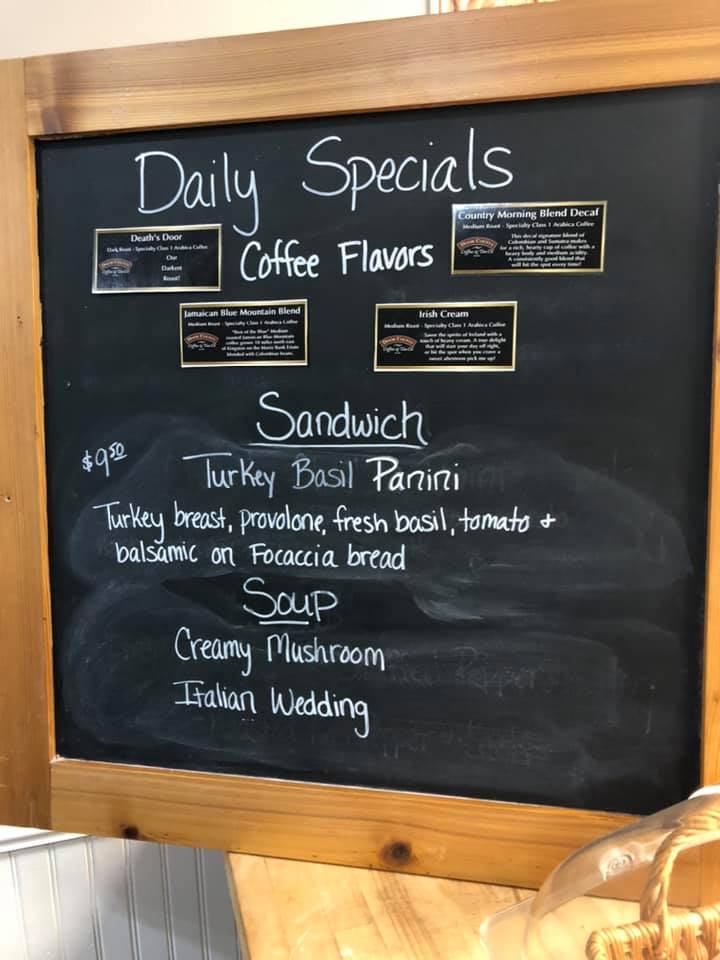 Daily Specials
Country Morning Blend Decaf
Medium Roast - Specialty Class 1 Arabica Coffee
This decaf signature blend of
Colombian and Sumatra makes
for a rich, hearty cup of coffee with a
heavy body and medium acidity.
A consistently good blend that
will hit the spot every time!
Death's Door
Dark Roast - Specialty Class 1 Arabica Coffee
Our
Darkest
Roast!
Coffee Flavors
Jamaican Blue Mountain Blend
Medium Roast - Specialty Class 1 Arabica Coffee
"Best of the Blue" Medium
roasted Jamaican Blue Mountain
coffee grown 10 miles north east
of Kingston on the Mavis Bank Estate
blended with Colombian beans.
Irish Cream
Medium Roast - Specialty Class 1 Arabica Coffee
Savor the spirits of Ireland with a
touch of heavy cream. A true delight
that will start your day off right,
or hit the spot when you crave a
sweet afternoon pick me up!
Sandwich
$9.50
Turkey Basil Panini
Turkey breast, provolone, fresh basil, tomato +
balsamic on Focaccia bread
Soup
Creamy Mushroom
Italian Wedding